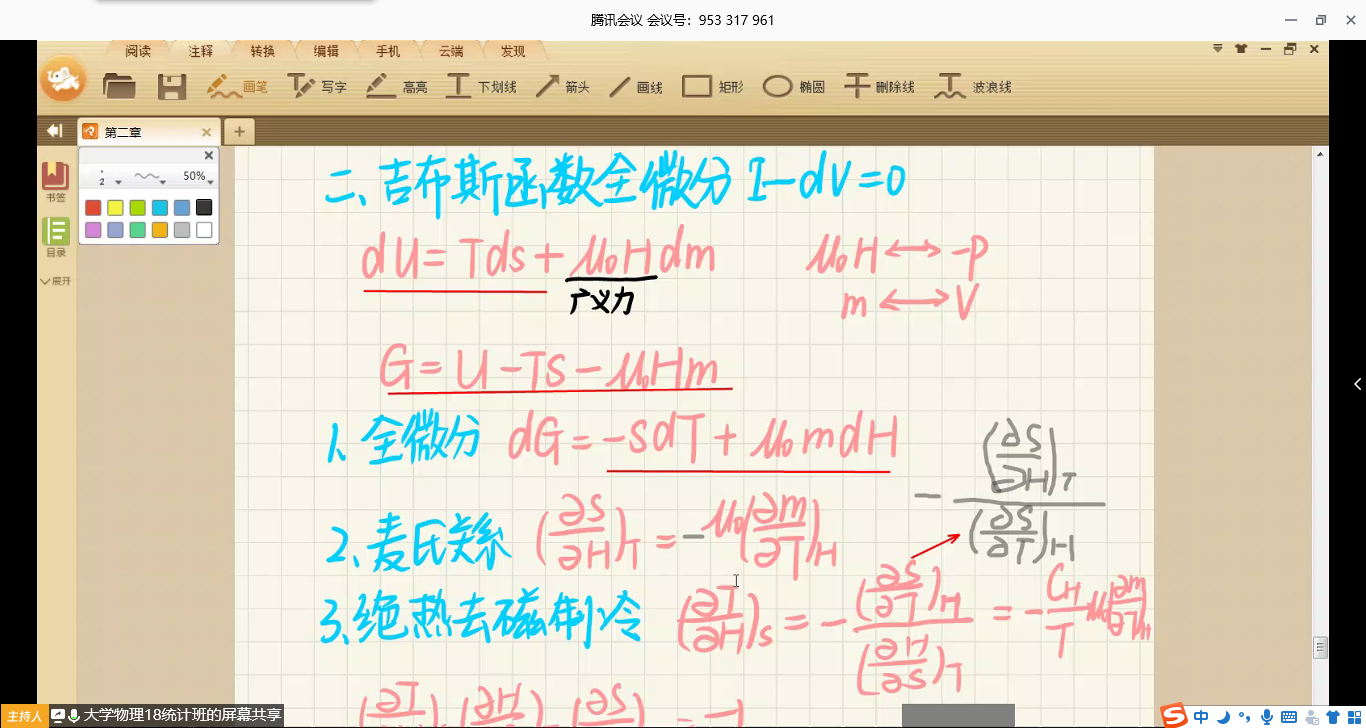 腾讯会议 会议号：953 317 961
阅读 注释 转换 编辑 手机 云端 发现
画笔 写字 高亮 下划线 箭头 画线 矩形 椭圆 删除线 波浪线
第二章
2 50%
书签
目录
展开
二、吉布斯函数全微分 I-dV=0
dU=Tds+μ₀Hdm μ₀H↔-P
广义力 m↔V
G=U-TS-μ₀Hm
1、全微分 dG=-SdT+μ₀mdH
-(∂S/∂H)_T/(∂S/∂T)_H
2、麦氏关系 (∂S/∂H)_T=-μ₀(∂m/∂T)_H
3、绝热去磁制冷 (∂T/∂H)_S=-(∂S/∂T)_H/(∂H/∂S)_T=-C_H/T μ₀(∂m/∂T)_H
主持人 大学物理18统计班的屏幕共享
中